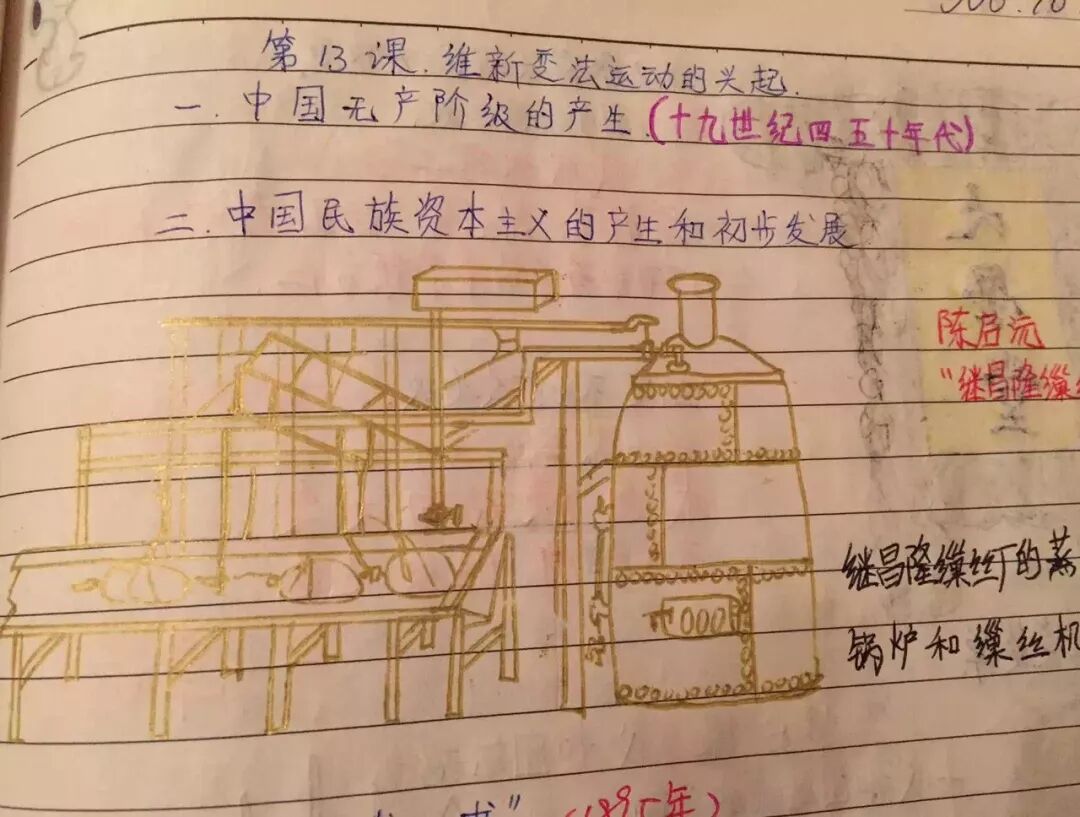 第13课.维新变法运动的兴起.
一.中国无产阶级的产生(十九世纪四.五十年代)
二.中国民族资本主义的产生和初步发展
陈启沅
"继昌隆缫
继昌隆缫丝厂的蒸
锅炉和缫丝机
书"(1895年)